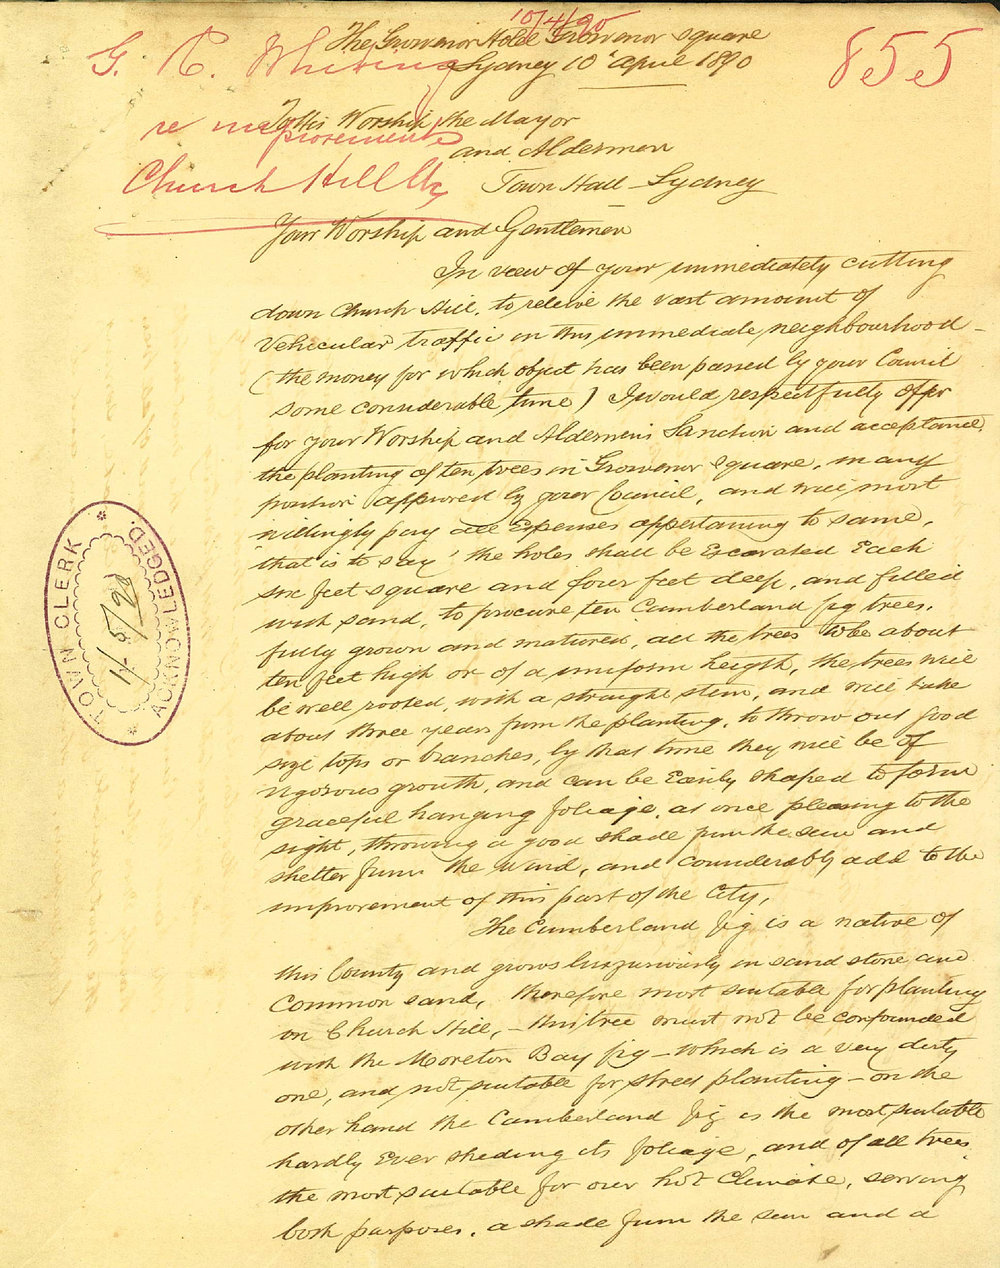 10/4/90
The Grosvenor Hotel Grosvenor Square
Sydney 10 April 1890
855
G. R. Whiting
re improvements
Church Hill &c
To His Worship the Mayor
and Aldermen
Town Hall Sydney
Your Worship and Gentlemen
In view of your immediately cutting
down Church Hill, to releive the vast amount of
Vehicular traffic in this immediate neighbourhood -
(the money for which object has been passed by your Council
some considerable time) I would respectfully offer
for your Worship and Aldermens Sanction and acceptance,
the planting of ten trees in Grosvenor Square, in any
position approved by your Council, and will most
willingly pay all Expenses appertaining to same,
'that is to say' the holes shall be Excavated Each
six feet square and four feet deep, and filled
with sand, to procure ten Cumberland fig trees,
fully grown and matured, all the trees to be about
ten feet high or of a uniform heigth, the trees will
be well rooted, with a straight stem, and will take
about three years from the planting, to throw out good
size tops or branches, by that time they will be of
vigorous growth, and can be Easily shaped to form
graceful hanging foliage, at once pleasing to the
sight, throwing a good shade from the sun and
shelter from the Wind, and considerably add to the
improvement of this part of the City,
The Cumberland fig is a native of
this County and grows luxuriously in sand stone and
Common sand, therefore most suitable for planting
on Church Hill, - this tree must not be confounded
with the Moreton Bay fig - which is a very dirty
one, and not suitable for street planting - on the
other hand the Cumberland fig is the most suitable
hardly Ever sheding its foliage, and of all trees,
the most suitable for our hot Climate, serving
both purposes, a shade from the sun and a
TOWN CLERK
ACKNOWLEDGED.